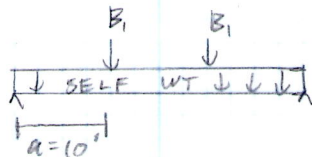 B₁ B₁
SELF WT
a=10'